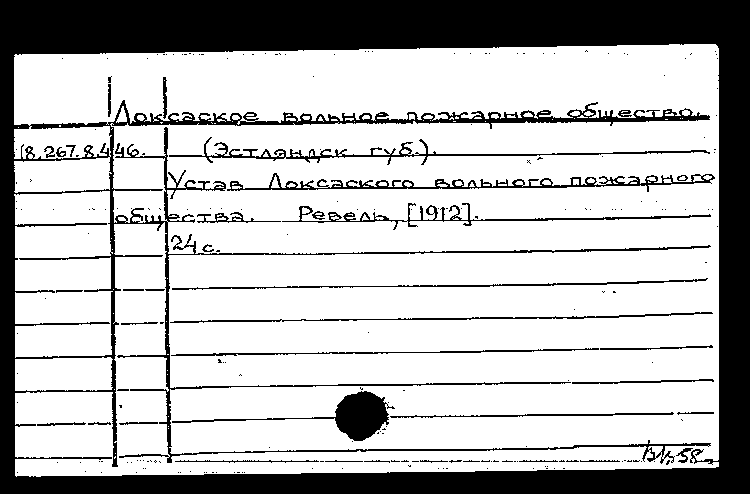 Локсаское вольное пожарное общество.
18.267.8.446. (Эстляндск губ.).
Устав Локсаского вольного пожарного
общества. Ревель, [1912].
24 с.
58